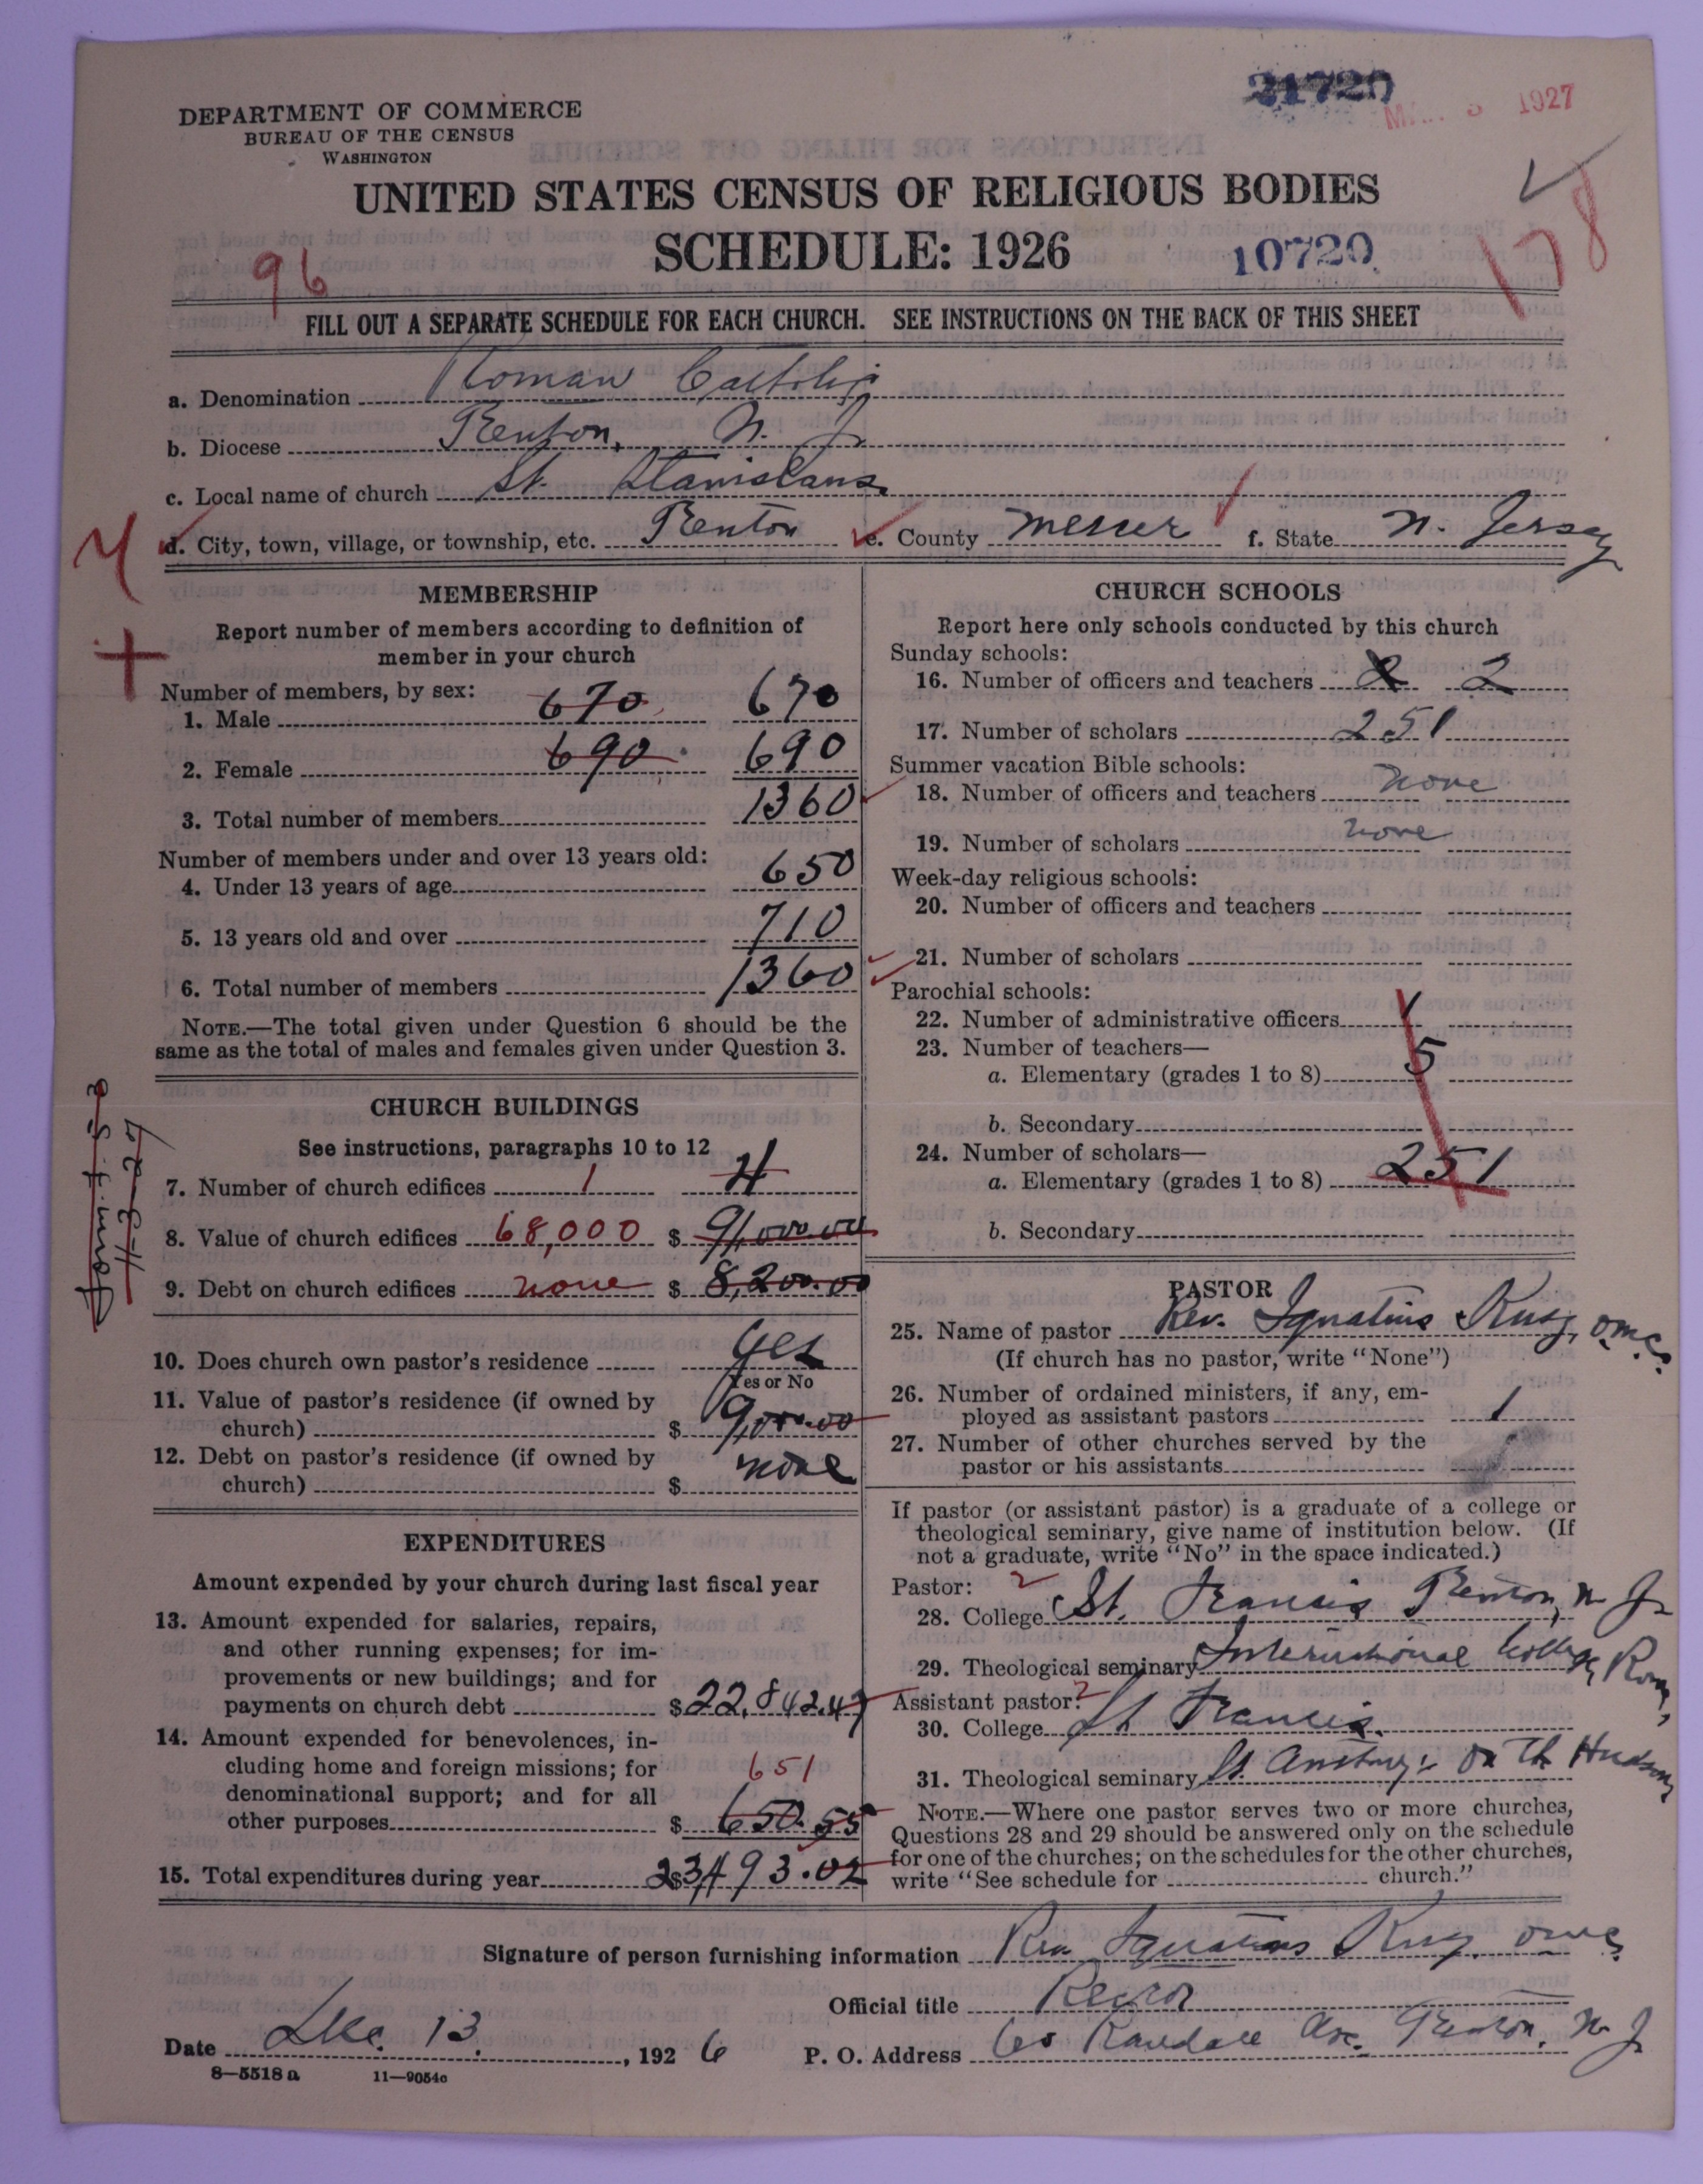 21720
1927
DEPARTMENT OF COMMERCE
BUREAU OF THE CENSUS
WASHINGTON
UNITED STATES CENSUS OF RELIGIOUS BODIES
SCHEDULE: 1926
10720
178
96
FILL OUT A SEPARATE SCHEDULE FOR EACH CHURCH. SEE INSTRUCTIONS ON THE BACK OF THIS SHEET
a. Denomination Roman Catholic
b. Diocese Trenton, N. J.
c. Local name of church St. Stanislaus
d. City, town, village, or township, etc. Trenton e. County Mercer f. State N. Jersey
MEMBERSHIP
Report number of members according to definition of
member in your church
Number of members, by sex:
1. Male 670 670
2. Female 690 690
3. Total number of members 1360
Number of members under and over 13 years old:
4. Under 13 years of age 650
5. 13 years old and over 710
6. Total number of members 1360
NOTE.—The total given under Question 6 should be the
same as the total of males and females given under Question 3.
CHURCH BUILDINGS
See instructions, paragraphs 10 to 12
7. Number of church edifices 1 4
8. Value of church edifices 68,000 $ 91,000.00
9. Debt on church edifices none $ 8,200.00
10. Does church own pastor's residence Yes
Yes or No
11. Value of pastor's residence (if owned by
church) $ 9,000.00
12. Debt on pastor's residence (if owned by
church) $ none
EXPENDITURES
Amount expended by your church during last fiscal year
13. Amount expended for salaries, repairs,
and other running expenses; for im-
provements or new buildings; and for
payments on church debt $ 22,842.47
14. Amount expended for benevolences, in-
cluding home and foreign missions; for
denominational support; and for all
651
other purposes $ 650.55
15. Total expenditures during year $ 23,493.02
CHURCH SCHOOLS
Report here only schools conducted by this church
Sunday schools:
16. Number of officers and teachers 2 2
17. Number of scholars 251
Summer vacation Bible schools:
18. Number of officers and teachers none
19. Number of scholars none
Week-day religious schools:
20. Number of officers and teachers
21. Number of scholars
Parochial schools:
22. Number of administrative officers
23. Number of teachers—
a. Elementary (grades 1 to 8) 5
b. Secondary
24. Number of scholars—
a. Elementary (grades 1 to 8) 251
b. Secondary
PASTOR
25. Name of pastor Rev. Ignatius Kusz, O.M.C.
(If church has no pastor, write "None")
26. Number of ordained ministers, if any, em-
ployed as assistant pastors 1
27. Number of other churches served by the
pastor or his assistants
If pastor (or assistant pastor) is a graduate of a college or
theological seminary, give name of institution below. (If
not a graduate, write "No" in the space indicated.)
Pastor:
28. College St. Francis Trenton, N. J.
29. Theological seminary International College, Rome,
Assistant pastor:
30. College St Francis
31. Theological seminary St. On The Hudson
NOTE.—Where one pastor serves two or more churches,
Questions 28 and 29 should be answered only on the schedule
for one of the churches; on the schedules for the other churches,
write "See schedule for church."
Signature of person furnishing information Rev. Ignatius Kusz. O.M.C.
Official title Rector
Date Dec. 13, 1926 P. O. Address 60 Randall Ave. Trenton, N. J.
8—5518a 11—9054c